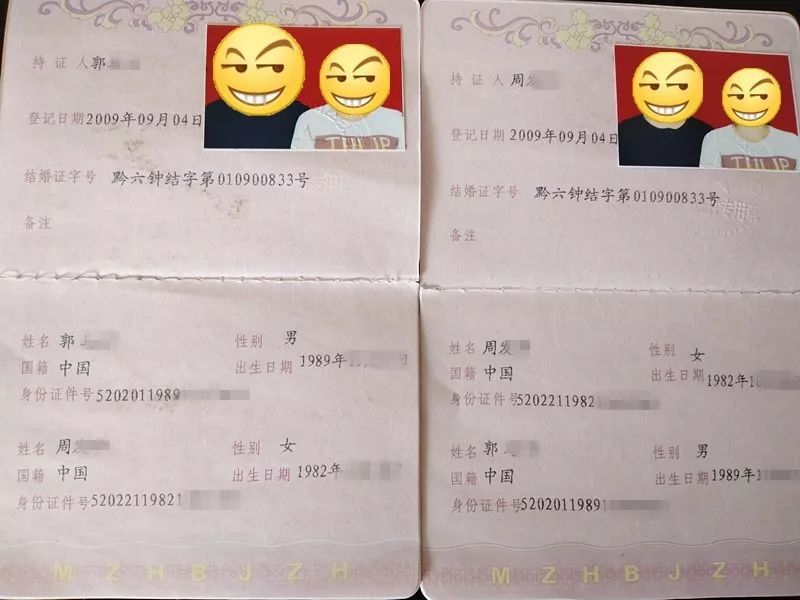 持证人郭
登记日期2009年09月04日
结婚证字号 黔六钟结字第010900833号
备注
姓名 郭 性别 男
国籍 中国 出生日期 1989年
身份证件号5202011989
姓名 周发 性别 女
国籍 中国 出生日期 1982年
身份证件号52022119821
MZHBJZH
持证人周发
登记日期 2009年09月04日
结婚证字号 黔六钟结字第010900833号
专用章
备注
姓名 周发 性别 女
国籍 中国 出生日期 1982年10
身份证件号5202211982
姓名 郭 性别 男
国籍 中国 出生日期 1989年1
身份证件号52020119891
MZHBJZH
TULIP
TULIP